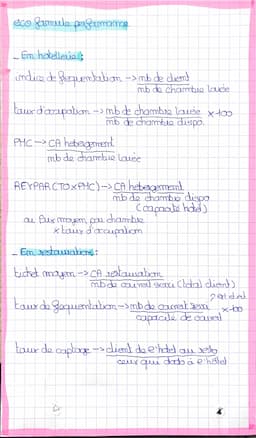 eco formule performance
- En hotellerie :
indice de frequentation -> nb de client
nb de chambre louée
taux d'occupation -> nb de chambre louée x 100
nb de chambre dispo.
PMC -> CA hebergement
nb de chambre louée
REVPAR (TO x PMC) -> CA hebergement
nb de chambre dispo
(capacité hotel)
ou Prix moyen par chambre
x taux d'occupation
- En restauration :
ticket moyen -> CA restauration
nb de couvert servi (total client)
taux de frequentation -> nb de couvert servi x 100
capacité de couvert
taux de captage -> client de l'hotel au resto
ceux qui dodo à l'hotel